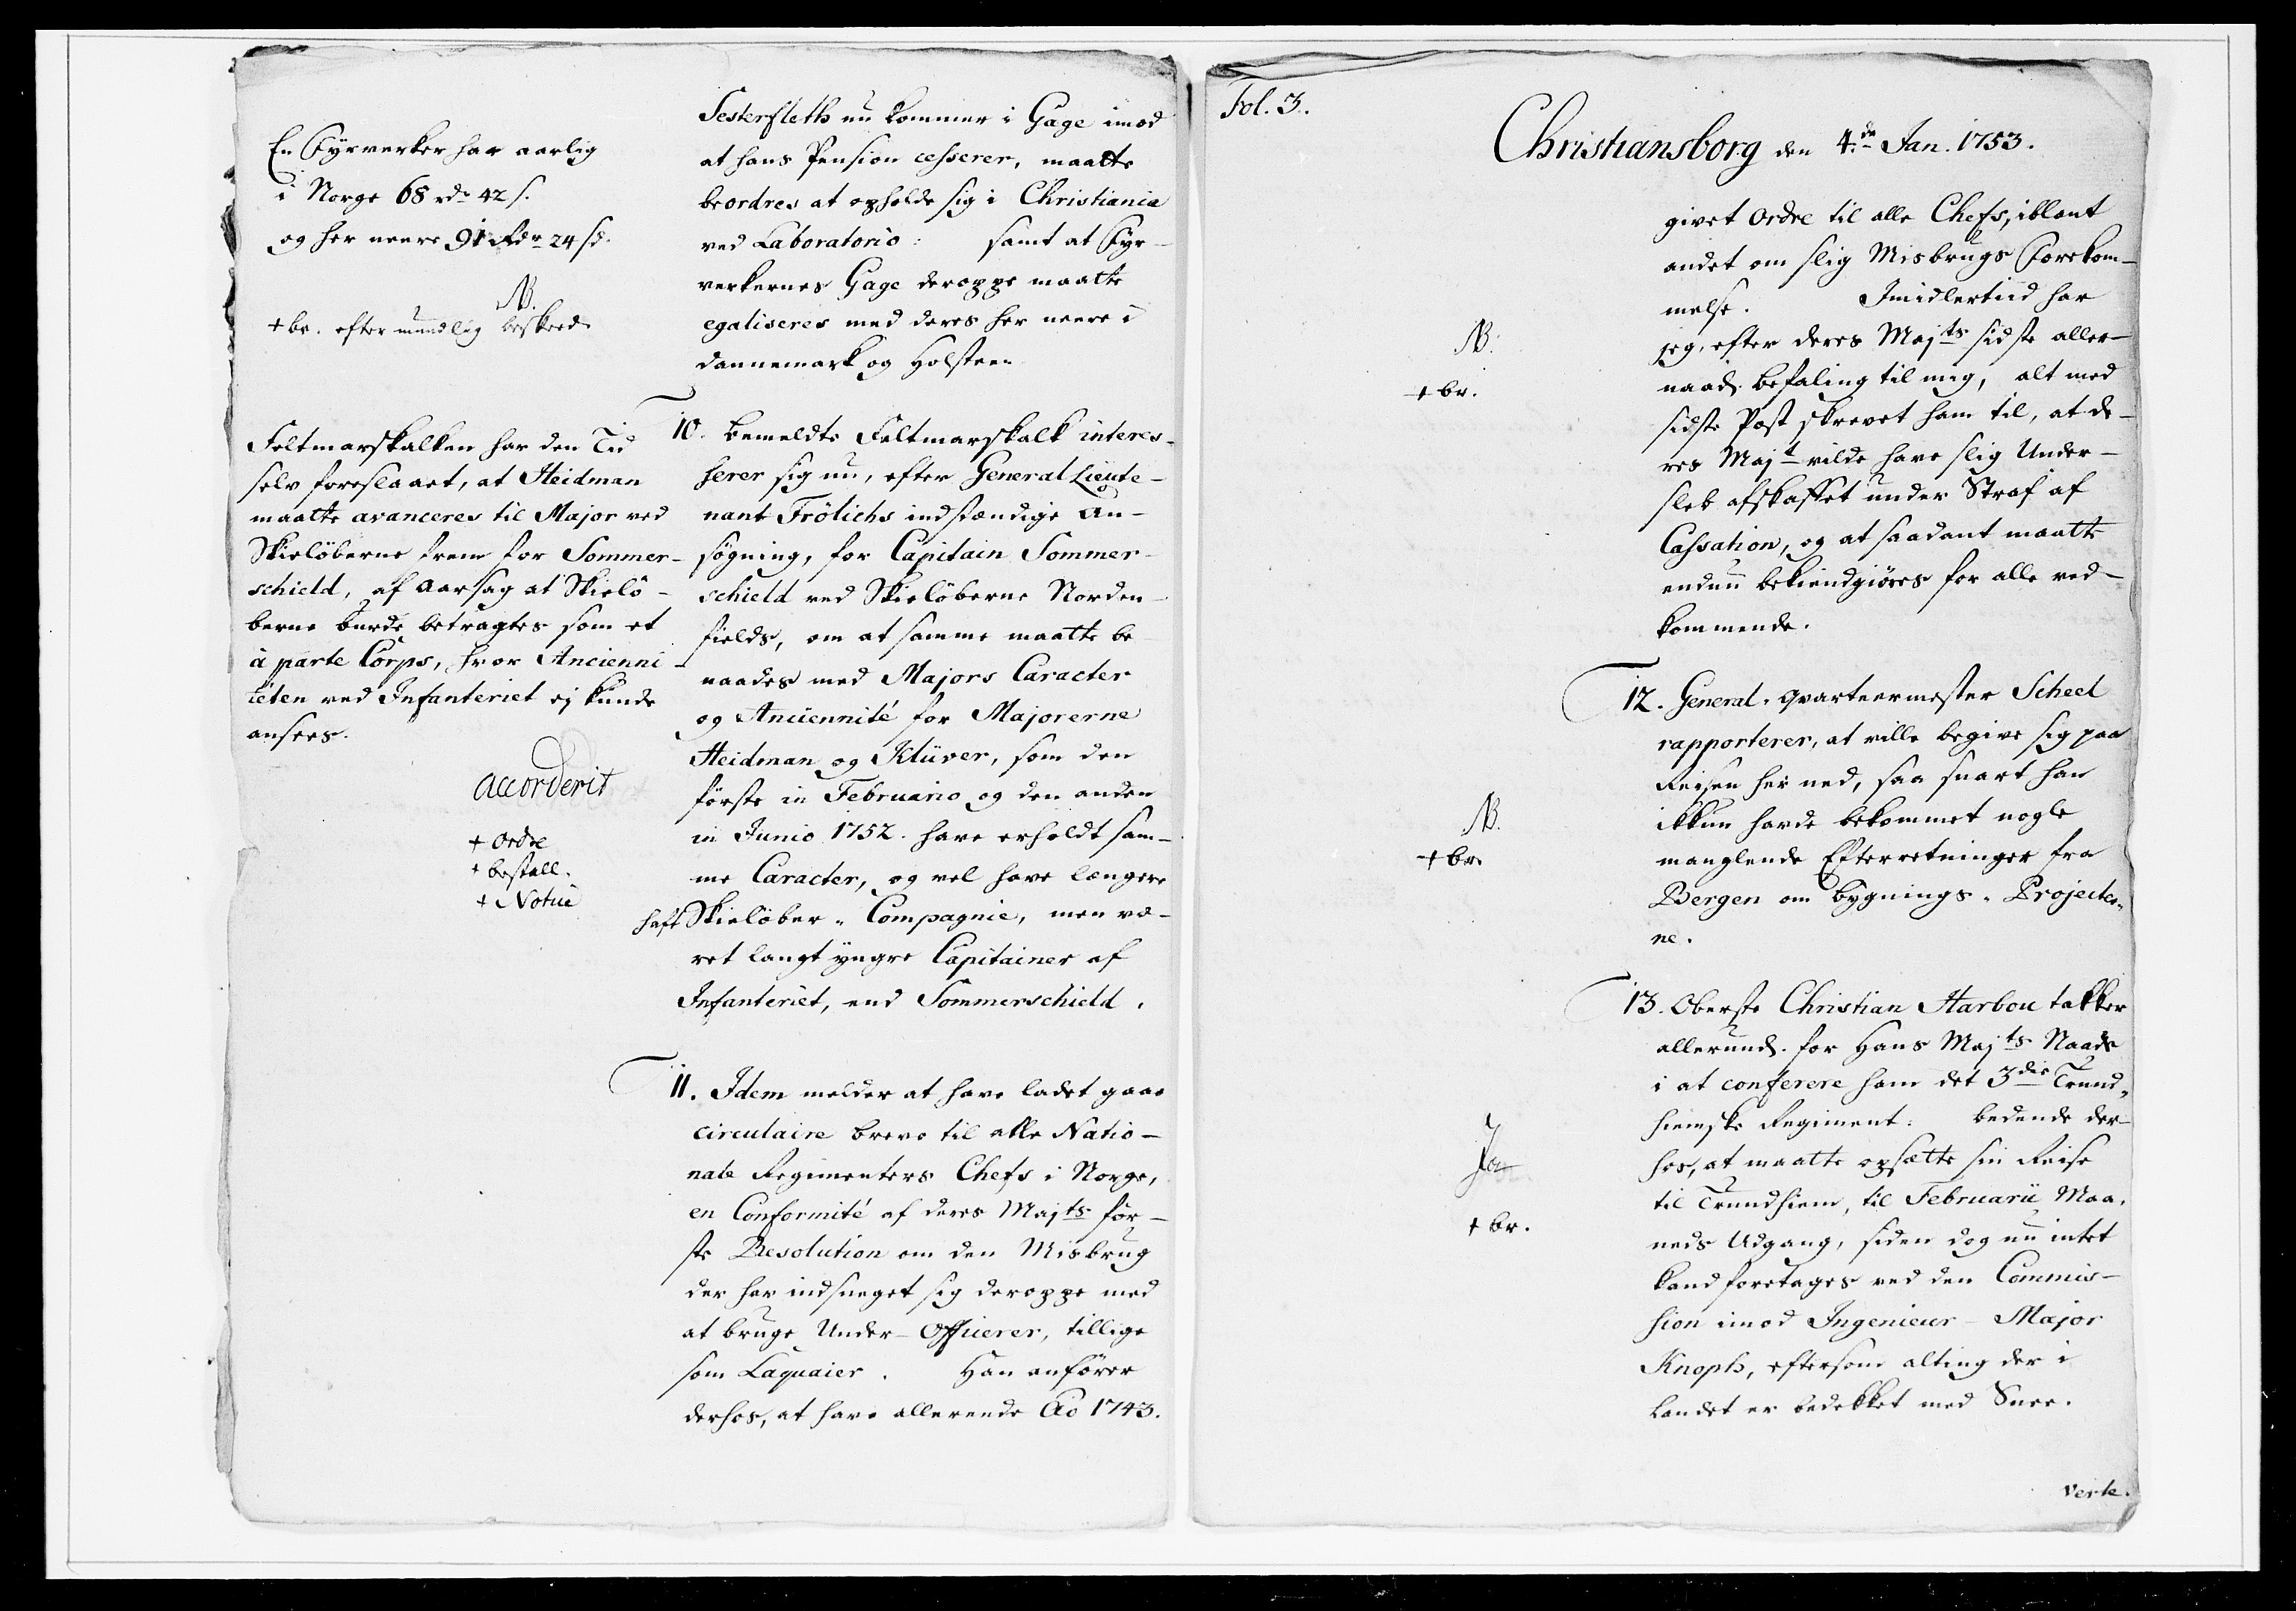 En Fyrverker har aarlig
i Norge 68 rdr 42 s.
og her neere 91 Rdr 24 sd.
NB.
+ br. efter mundlig beskeed
Feltmarskalken har den Tid
selv foreslaaet, at Heidman
maatte avanceres til Major ved
Skielöberne frem for Sommer-
schield, af Aarsag at Skielö-
berne burde betragtes som et
à parte Corps, hvor Ancienni-
teten ved Infanteriet ej kunde
ansees.
Accorderit
+ Ordre
+ bestall.
+ Notice
Sesterfleth nu kommer i Gage imod
at hans Pension cesserer, maatte
beordres at opholde sig i Christiania
ved Laboratorio: samt at Fyr-
verkernes Gage deroppe maatte
egaliseres med deres her neere i
Dannemark og Holsteen
10. Bemeldte Feltmarskalk interes-
serer sig nu, efter General Lieute-
nant Frölichs indstændige An-
søgning, for Capitain Sommer-
schield ved Skielöberne Norden-
fields, om at samme maatte be-
naades med Majors Caracter
og Anciennité for Majorerne
Heidman og Klüver, som den
förste in Februario og den anden
in Junio 1752. have erholdt sam-
me Caracter, og vel have længere
haft Skielöber-Compagnie, men væ-
ret langt yngre Capitainer af
Infanteriet, end Sommerschield.
11. Idem melder at have ladet gaae
circulaire breve til alle Natio-
nale Regimenters Chefs i Norge,
en Conformité af deres Majts för-
ste Resolution om den Misbrug
der har indsneget sig deroppe med
at bruge Under-Officerer, tillige
som Laquaier. Han anfører
derhos, at have allerende Ao 1743.
Fol. 3.
Christiansborg den 4.de Jan. 1753.
givet Ordre til alle Chefs, iblant
andet om slig Misbrugs Forekom-
melse. Imidlertiid har
jeg, efter deres Majts sidste aller-
naad. befaling til mig, alt med
sidste Post skrevet ham til, at de-
res Majt vilde have slig Under-
sleb afskaffet under Straf af
Cassation, og at saadant maatte
endnu bekiendgiöres for alle ved-
kommende.
NB.
+ br.
12. General-qvarteermester Scheel
rapporterer, at ville begive sig paa
Reisen her ned, saa snart han
ikkun havde bekommet nogle
manglende Efterretninger fra
Bergen om bygnings-Projecter-
ne.
NB.
+ br.
13. Oberste Christian Harbou takker
allerund. for Hans Majts Naade
i at conferere ham det 3die Trund-
hiemske Regiment: bedende der-
hos, at maatte opsætte sin Reise
til Trundhiem, til Februarii Maa-
neds Udgang, siden dog nu intet
kand foretages ved den Commis-
sion imod Ingenieur-Major
Knoph, eftersom alting der i
Landet er bedekket med Snee.
Ja
+ br.
Verte.